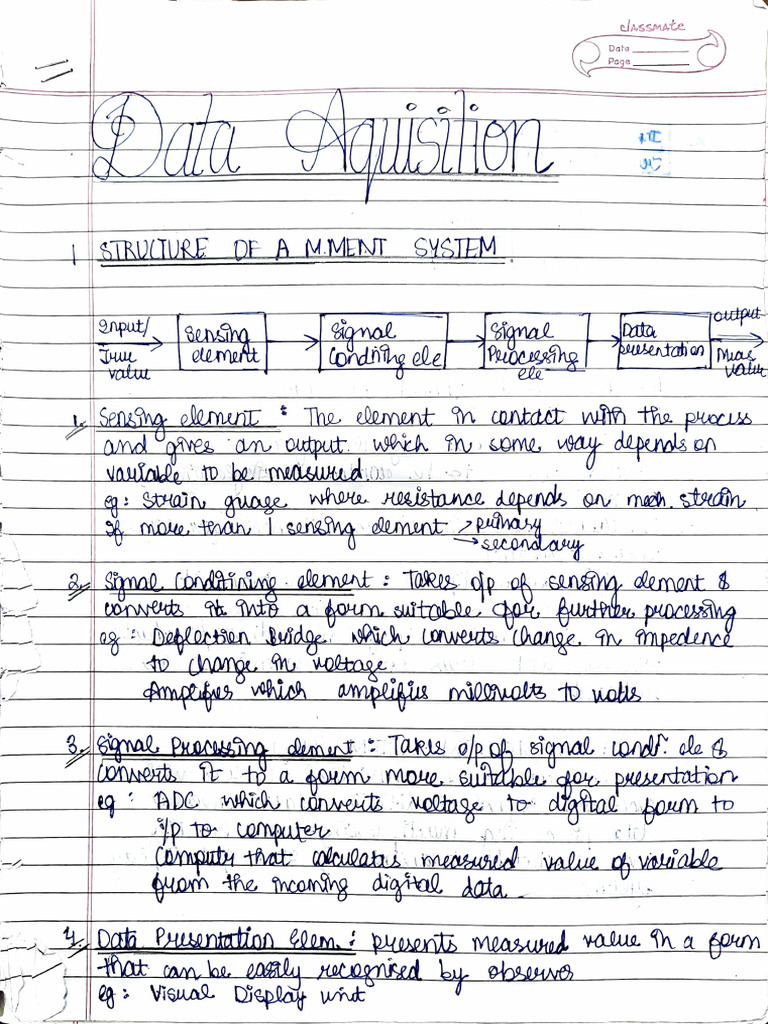 classmate
Date
Page
Data Aquisition
1 STRUCTURE OF A M.MENT SYSTEM.
Input/ True value
Sensing element
Signal Condning ele
Signal Processing ele
Data presentation
output Meas value
1. Sensing element : The element in contact with the process
and gives an output which in some way depends on
variable to be measured.
eg: Strain guage where resistance depends on mech. strain
if more than 1 sensing element → primary
→ secondary
2. Signal Conditining element : Takes o/p of sensing element &
converts it into a form suitable for further processing
eg : Deflection Bridge which converts change in impedence
to change in voltage.
Amplifies which amplifies millivolts to volts.
3. Signal Processing element : Takes o/p of signal condn. ele &
converts it to a form more suitable for presentation
eg : ADC which converts voltage to digital form to
i/p to computer
Computy that calculates measured value of variable
from the incoming digital data.
4. Data Presentation Elem. : presents measured value in a form
that can be easily recognised by observer
eg : Visual Display unit